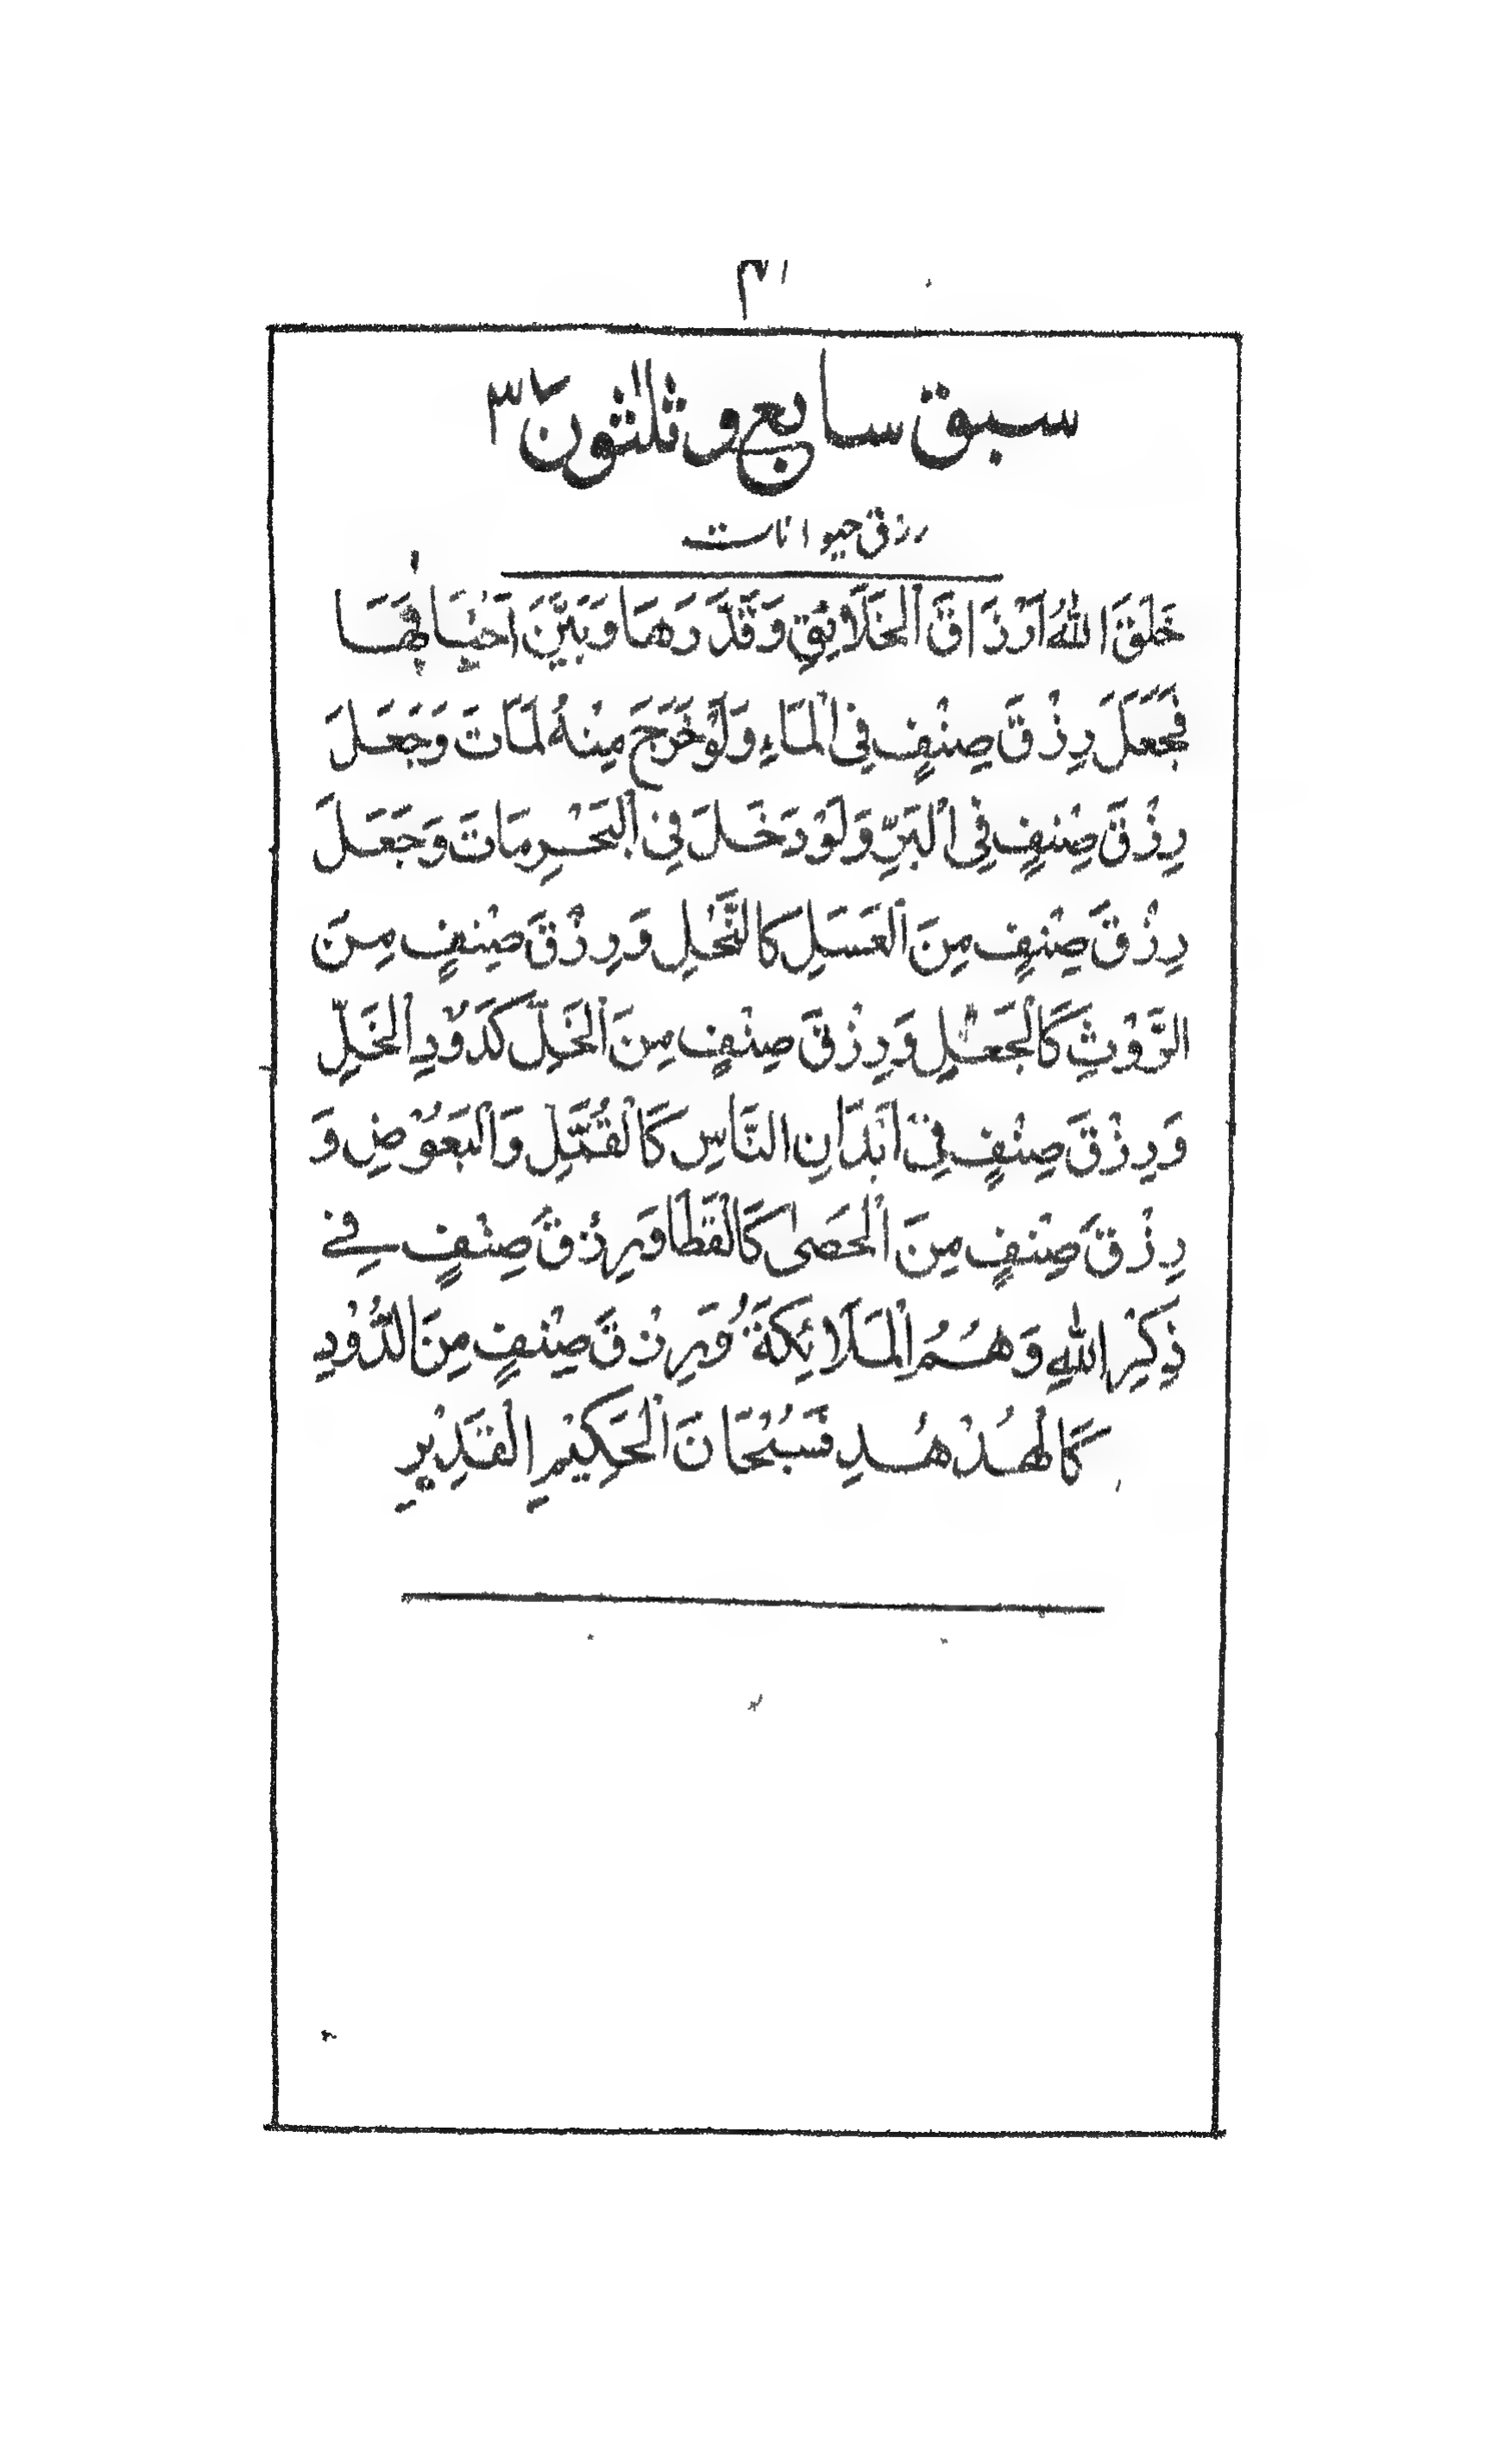 سبق سابع و ثلثون ٣٧
رزق حیوانات
خَلَقَ اللّٰهُ اَرْزَاقَ الْخَلَائِقِ وَقَدَّرَهَا وَبَيَّنَ اَحْيَافَهَا
فَجَعَلَ رِزْقَ صِنْفٍ فِي الْمَاءِ وَلَوْ خَرَجَ مِنْهُ لَمَاتَ وَجَعَلَ
رِزْقَ صِنْفٍ فِي الْبَرِّ وَلَوْ دَخَلَ فِي الْبَحْرِ مَاتَ وَجَعَلَ
رِزْقَ صِنْفٍ مِنَ الْعَسَلِ كَالنَّحْلِ وَرِزْقَ صِنْفٍ مِنَ
الرَّوْثِ كَالْجَعْلِ وَرِزْقَ صِنْفٍ مِنَ الْخَلِّ كَدُوْدِ الْخَلِّ
وَرِزْقَ صِنْفٍ فِيْ اَبْدَانِ النَّاسِ كَالْقُمَّلِ وَالْبَعُوْضِ وَ
رِزْقَ صِنْفٍ مِنَ الْحَصٰى كَالْقَطَا وَرِزْقَ صِنْفٍ فِيْ
ذِكْرِ اللّٰهِ وَهُمُ الْمَلَائِكَةُ وَرِزْقَ صِنْفٍ مِنَ الدُّوْدِ
كَالْهُدْهُدِ فَسُبْحَانَ الْحَكِيْمِ الْقَدِيْرِ